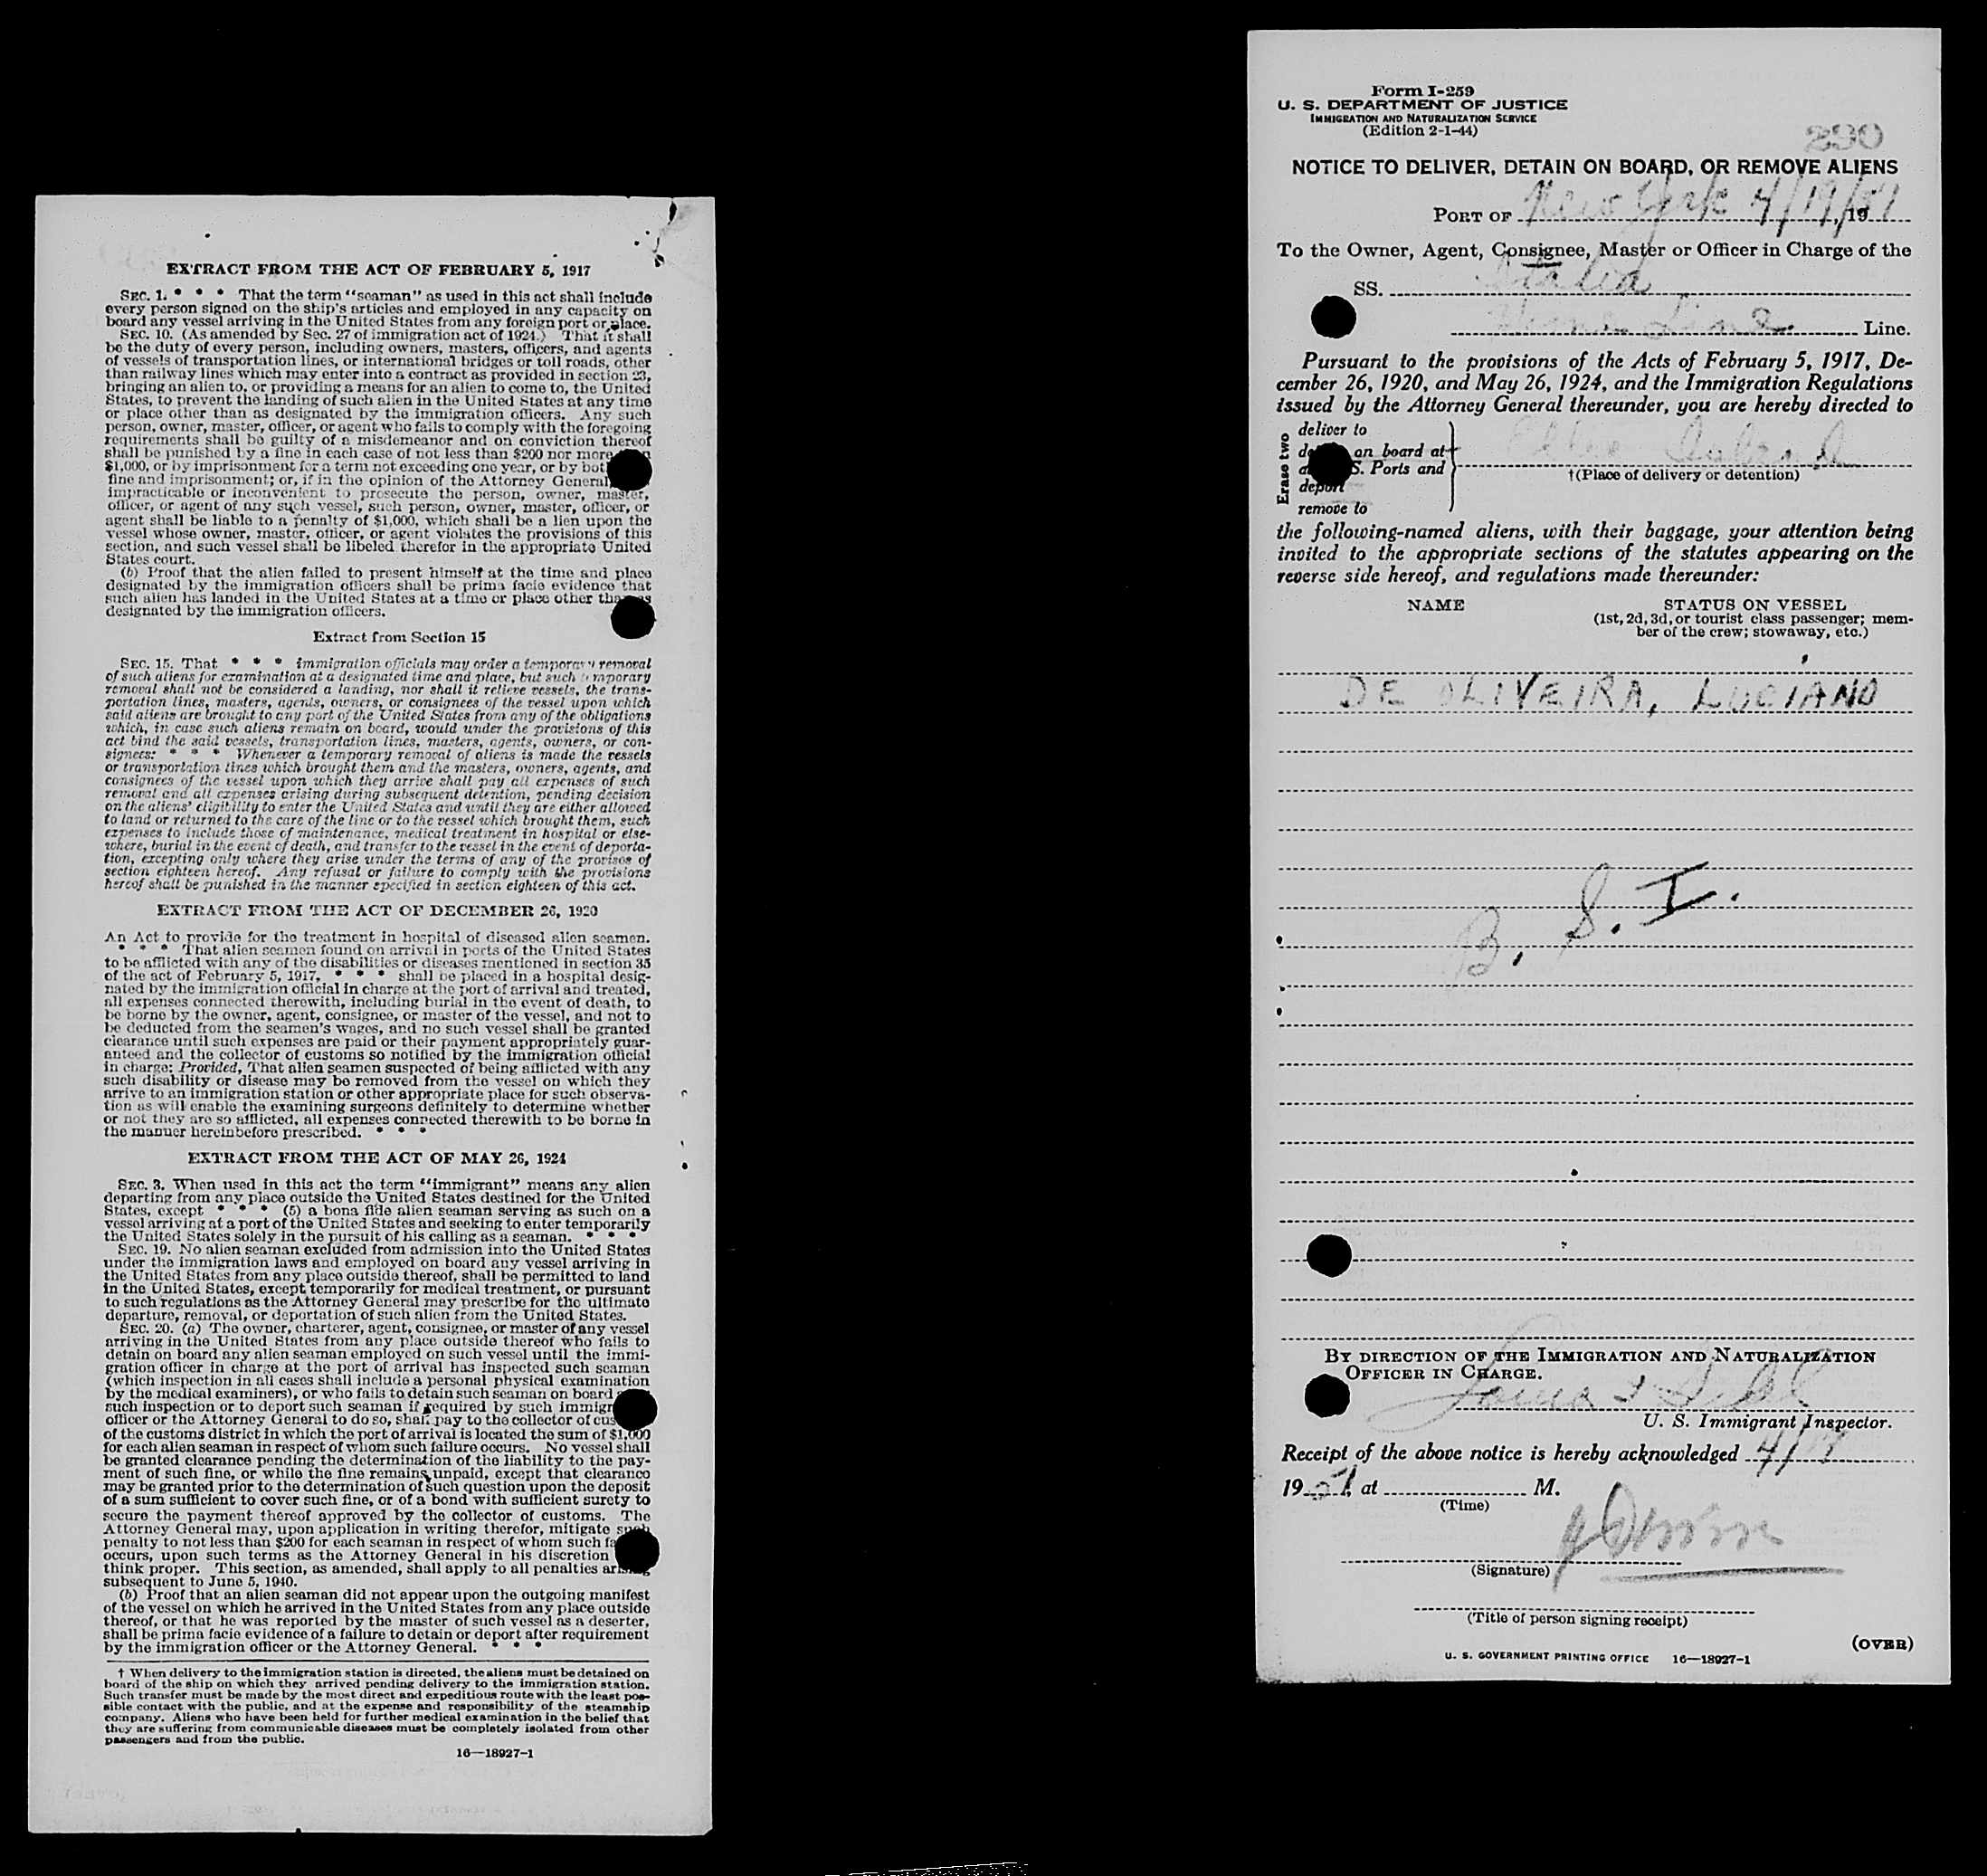 EXTRACT FROM THE ACT OF FEBRUARY 5, 1917
SEC. 1. * * * That the term "seaman" as used in this act shall include
every person signed on the ship's articles and employed in any capacity on
board any vessel arriving in the United States from any foreign port or place.
SEC. 10. (As amended by Sec. 27 of immigration act of 1924.) That it shall
be the duty of every person, including owners, masters, officers, and agents
of vessels of transportation lines, or international bridges or toll roads, other
than railway lines which may enter into a contract as provided in section 23,
bringing an alien to, or providing a means for an alien to come to, the United
States, to prevent the landing of such alien in the United States at any time
or place other than as designated by the immigration officers. Any such
person, owner, master, officer, or agent who fails to comply with the foregoing
requirements shall be guilty of a misdemeanor and on conviction thereof
shall be punished by a fine in each case of not less than $200 nor more
$1,000, or by imprisonment for a term not exceeding one year, or by bot
fine and imprisonment; or, if in the opinion of the Attorney General,
impracticable or inconvenient to prosecute the person, owner, master,
officer, or agent of any such vessel, such person, owner, master, officer, or
agent shall be liable to a penalty of $1,000, which shall be a lien upon the
vessel whose owner, master, officer, or agent violates the provisions of this
section, and such vessel shall be libeled therefor in the appropriate United
States court.
(b) Proof that the alien failed to present himself at the time and place
designated by the immigration officers shall be prima facie evidence that
such alien has landed in the United States at a time or place other than as
designated by the immigration officers.
Extract from Section 15
SEC. 15. That * * * immigration officials may order a temporary removal
of such aliens for examination at a designated time and place, but such temporary
removal shall not be considered a landing, nor shall it relieve vessels, the trans-
portation lines, masters, agents, owners, or consignees of the vessel upon which
said aliens are brought to any port of the United States from any of the obligations
which, in case such aliens remain on board, would under the provisions of this
act bind the said vessels, transportation lines, masters, agents, owners, or con-
signees: * * * Whenever a temporary removal of aliens is made the vessels
or transportation lines which brought them and the masters, owners, agents, and
consignees of the vessel upon which they arrive shall pay all expenses of such
removal and all expenses arising during subsequent detention, pending decision
on the aliens' eligibility to enter the United States and until they are either allowed
to land or returned to the care of the line or to the vessel which brought them, such
expenses to include those of maintenance, medical treatment in hospital or else-
where, burial in the event of death, and transfer to the vessel in the event of deporta-
tion, excepting only where they arise under the terms of any of the provisos of
section eighteen hereof. Any refusal or failure to comply with the provisions
hereof shall be punished in the manner specified in section eighteen of this act.
EXTRACT FROM THE ACT OF DECEMBER 26, 1920
An Act to provide for the treatment in hospital of diseased alien seamen.
* * * That alien seamen found on arrival in ports of the United States
to be afflicted with any of the disabilities or diseases mentioned in section 35
of the act of February 5, 1917, * * * shall be placed in a hospital desig-
nated by the immigration official in charge at the port of arrival and treated,
all expenses connected therewith, including burial in the event of death, to
be borne by the owner, agent, consignee, or master of the vessel, and not to
be deducted from the seamen's wages, and no such vessel shall be granted
clearance until such expenses are paid or their payment appropriately guar-
anteed and the collector of customs so notified by the immigration official
in charge: Provided, That alien seamen suspected of being afflicted with any
such disability or disease may be removed from the vessel on which they
arrive to an immigration station or other appropriate place for such observa-
tion as will enable the examining surgeons definitely to determine whether
or not they are so afflicted, all expenses connected therewith to be borne in
the manner hereinbefore prescribed. * * *
EXTRACT FROM THE ACT OF MAY 26, 1924
SEC. 3. When used in this act the term "immigrant" means any alien
departing from any place outside the United States destined for the United
States, except * * * (5) a bona fide alien seaman serving as such on a
vessel arriving at a port of the United States and seeking to enter temporarily
the United States solely in the pursuit of his calling as a seaman. * * *
SEC. 19. No alien seaman excluded from admission into the United States
under the immigration laws and employed on board any vessel arriving in
the United States from any place outside thereof, shall be permitted to land
in the United States, except temporarily for medical treatment, or pursuant
to such regulations as the Attorney General may prescribe for the ultimate
departure, removal, or deportation of such alien from the United States.
SEC. 20. (a) The owner, charterer, agent, consignee, or master of any vessel
arriving in the United States from any place outside thereof who fails to
detain on board any alien seaman employed on such vessel until the immi-
gration officer in charge at the port of arrival has inspected such seaman
(which inspection in all cases shall include a personal physical examination
by the medical examiners), or who fails to detain such seaman on board
such inspection or to deport such seaman if required by such immigr
officer or the Attorney General to do so, shall pay to the collector of cus
of the customs district in which the port of arrival is located the sum of $1,000
for each alien seaman in respect of whom such failure occurs. No vessel shall
be granted clearance pending the determination of the liability to the pay-
ment of such fine, or while the fine remains unpaid, except that clearance
may be granted prior to the determination of such question upon the deposit
of a sum sufficient to cover such fine, or of a bond with sufficient surety to
secure the payment thereof approved by the collector of customs. The
Attorney General may, upon application in writing therefor, mitigate such
penalty to not less than $200 for each seaman in respect of whom such fa
occurs, upon such terms as the Attorney General in his discretion
think proper. This section, as amended, shall apply to all penalties arising
subsequent to June 5, 1940.
(b) Proof that an alien seaman did not appear upon the outgoing manifest
of the vessel on which he arrived in the United States from any place outside
thereof, or that he was reported by the master of such vessel as a deserter,
shall be prima facie evidence of a failure to detain or deport after requirement
by the immigration officer or the Attorney General. * * *
† When delivery to the immigration station is directed, the aliens must be detained on
board of the ship on which they arrived pending delivery to the immigration station.
Such transfer must be made by the most direct and expeditious route with the least pos-
sible contact with the public, and at the expense and responsibility of the steamship
company. Aliens who have been held for further medical examination in the belief that
they are suffering from communicable diseases must be completely isolated from other
passengers and from the public.
16—18927-1
Form I-259
U. S. DEPARTMENT OF JUSTICE
IMMIGRATION AND NATURALIZATION SERVICE
(Edition 2-1-44)
290
NOTICE TO DELIVER, DETAIN ON BOARD, OR REMOVE ALIENS
PORT OF New York 4/19/, 1951
To the Owner, Agent, Consignee, Master or Officer in Charge of the
SS. Italia
Home Line Line.
Pursuant to the provisions of the Acts of February 5, 1917, De-
cember 26, 1920, and May 26, 1924, and the Immigration Regulations
issued by the Attorney General thereunder, you are hereby directed to
Erase two
deliver to
on board at
S. Ports and
deport
remove to
Ellis Island
†(Place of delivery or detention)
the following-named aliens, with their baggage, your attention being
invited to the appropriate sections of the statutes appearing on the
reverse side hereof, and regulations made thereunder:
NAME STATUS ON VESSEL
(1st, 2d, 3d, or tourist class passenger; mem-
ber of the crew; stowaway, etc.)
DE OLIVEIRA, LUCIANO
B. S. I.
BY DIRECTION OF THE IMMIGRATION AND NATURALIZATION
OFFICER IN CHARGE.
U. S. Immigrant Inspector.
Receipt of the above notice is hereby acknowledged 4/19
1951, at M.
(Time)
(Signature)
(Title of person signing receipt)
(OVER)
U. S. GOVERNMENT PRINTING OFFICE 16—18927-1